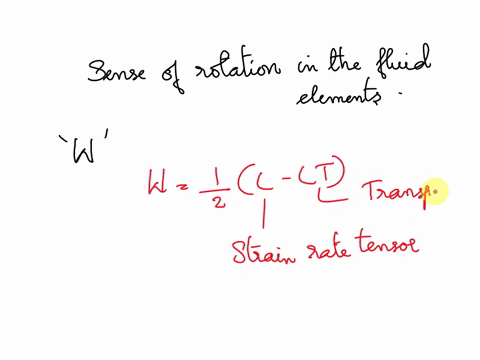 Sense of rotation in the fluid
elements.
'W'
W = 1/2 (L - LT)
Transp
Strain rate tensor